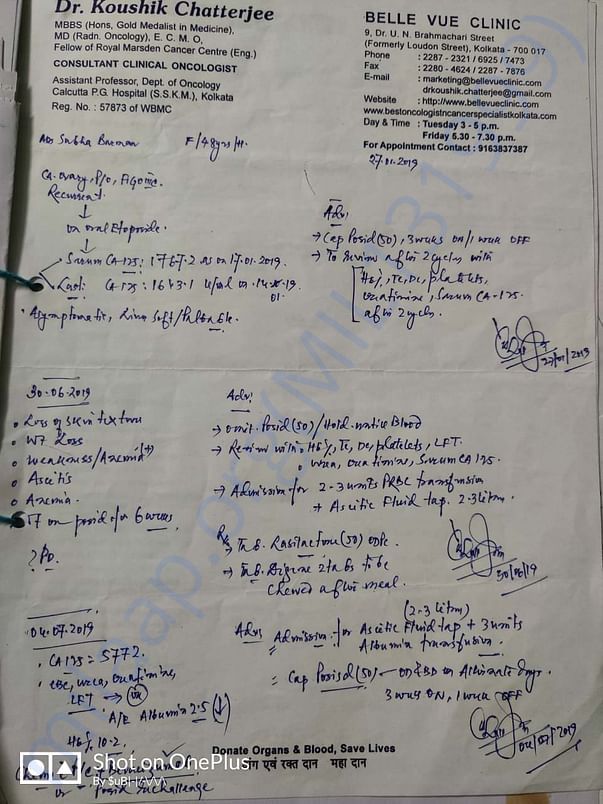 Dr. Koushik Chatterjee
MBBS (Hons, Gold Medalist in Medicine),
MD (Radn. Oncology), E. C. M. O,
Fellow of Royal Marsden Cancer Centre (Eng.)
CONSULTANT CLINICAL ONCOLOGIST
Assistant Professor, Dept. of Oncology
Calcutta P.G. Hospital (S.S.K.M.), Kolkata
Reg. No. : 57873 of WBMC
BELLE VUE CLINIC
9, Dr. U. N. Brahmachari Street
(Formerly Loudon Street), Kolkata - 700 017
Phone : 2287 - 2321 / 6925 / 7473
Fax : 2280 - 4624 / 2287 - 7876
E-mail : marketing@bellevueclinic.com
drkoushik.chatterjee@gmail.com
Website : http://www.bellevueclinic.com
www.bestoncologistncancerspecialistkolkata.com
Day & Time : Tuesday 3 - 5 p.m.
Friday 5.30 - 7.30 p.m.
For Appointment Contact : 9163837387
F/48yrs/H.
27.01.2019
Ca. ovary, P/O,
Recurrent.
↓
on oral Etoposide.
↓
Serum CA-125: 1767.2 as on 17.01.2019.
CA 125: 1643.1
Asymptomatic, Soft/Palpable.
Adv:
→ Cap Posid (50), 3 weeks on/1 week OFF
→ To review after 2 cycles with
Hb%, Tc, Dc, platelets,
creatinine, Serum CA-125.
after 2 cycles.
30.06.2019
• Loss of skin texture
• WT Loss
• Weakness/Anemia (+)
• Ascitis
• Anemia.
on posid for 6 weeks.
? PD.
Adv:
→ Omit Posid (50)
→ Review with: Hb%, Tc, Dc, platelets, LFT.
urea, creatinine, Serum CA 125.
→ Admission for 2-3 units PRBC transfusion
+ Ascitic Fluid tap. 2-3 litre.
Rx
→ Tab. Lasilactone (50) ODPC.
→ Tab. Digene 2 tabs to be
chewed after meal.
30/06/19
04.07.2019
• CA 125 = 5772.
• CBC, urea, creatinine,
LFT →
Albumin 2.5 (↓)
Hb% 10.2
Adv: Admission for Ascitic Fluid tap + 3 units
(2-3 litre)
Albumin transfusion.
= Cap Posid (50) – OD & BD on Alternate days.
3 week ON, 1 week OFF
04/07/2019
Donate Organs & Blood, Save Lives
अंग एवं रक्त दान महा दान
or Posid rechallenge
Shot on OnePlus
By SUBHAVVV